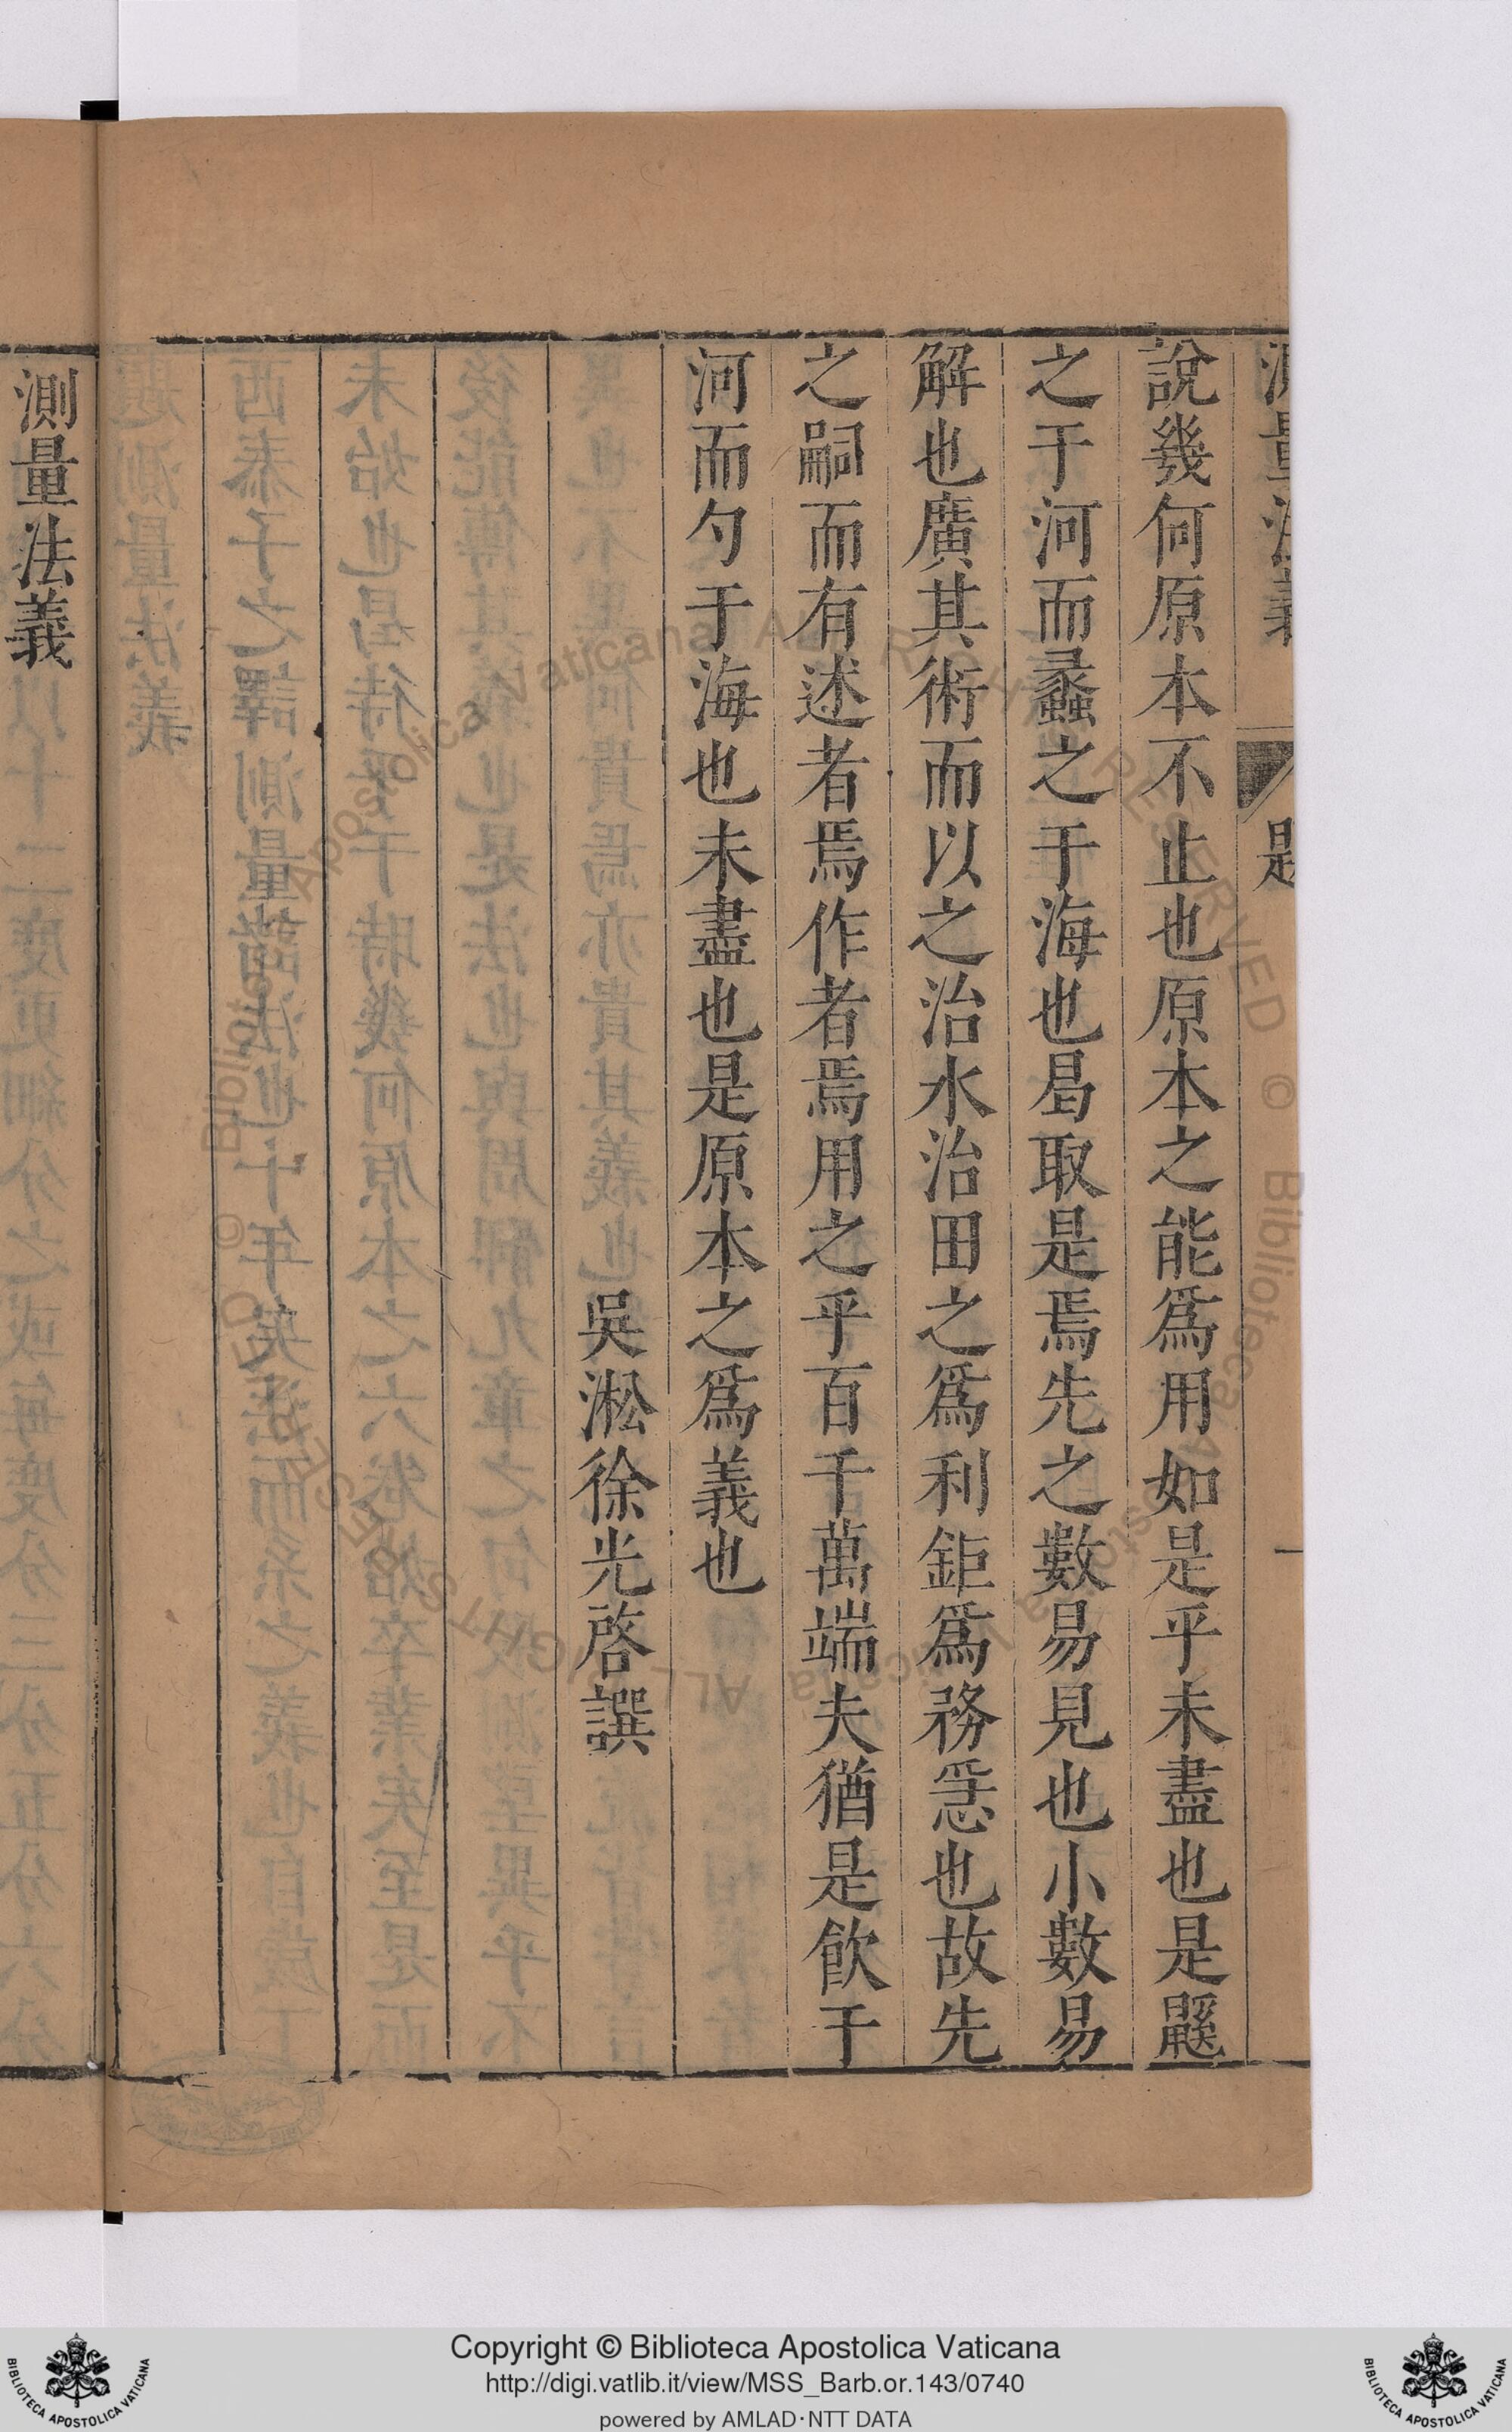 測量法義 題 一
說幾何原本不止也原本之能爲用如是乎未盡也是鼷
之于河而蠡之于海也曷取是焉先之數易見也小數易
解也廣其術而以之治水治田之爲利鉅爲務急也故先
之嗣而有述者焉作者焉用之乎百千萬端夫猶是飮于
河而勺于海也未盡也是原本之爲義也
吳淞徐光啓譔
測量法義
Copyright © Biblioteca Apostolica Vaticana
http://digi.vatlib.it/view/MSS_Barb.or.143/0740
powered by AMLAD·NTT DATA
BIBLIOTECA APOSTOLICA VATICANA
BIBLIOTECA APOSTOLICA VATICANA